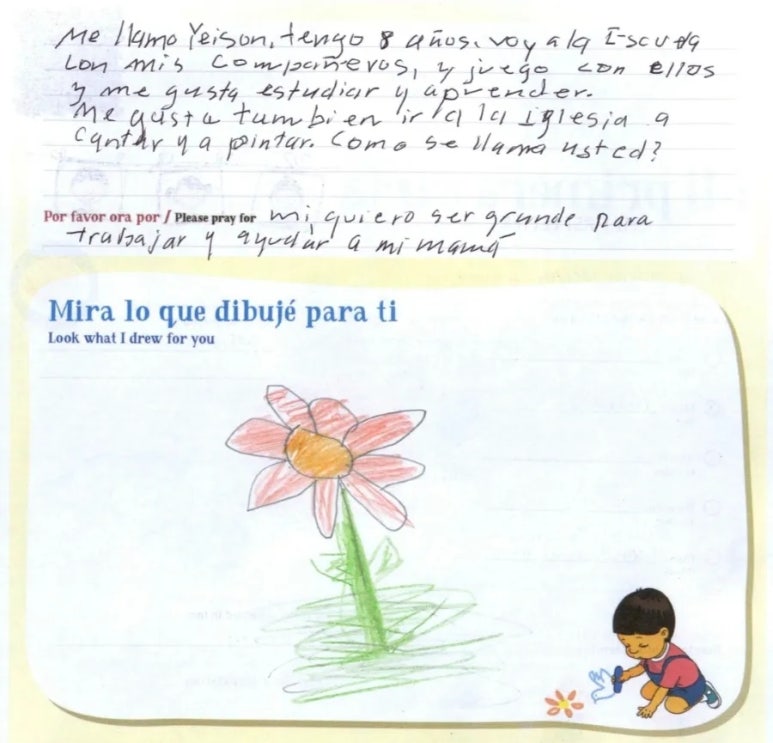 Me llamo Yeison, tengo 8 años. voy a la Escuela
con mis compañeros, y juego con ellos
y me gusta estudiar y aprender.
Me gusta tambien ir a la iglesia a
cantar y a pintar. Como se llama usted?
Por favor ora por / Please pray for mi, quiero ser grande para
trabajar y ayudar a mi mamá
Mira lo que dibujé para ti
Look what I drew for you